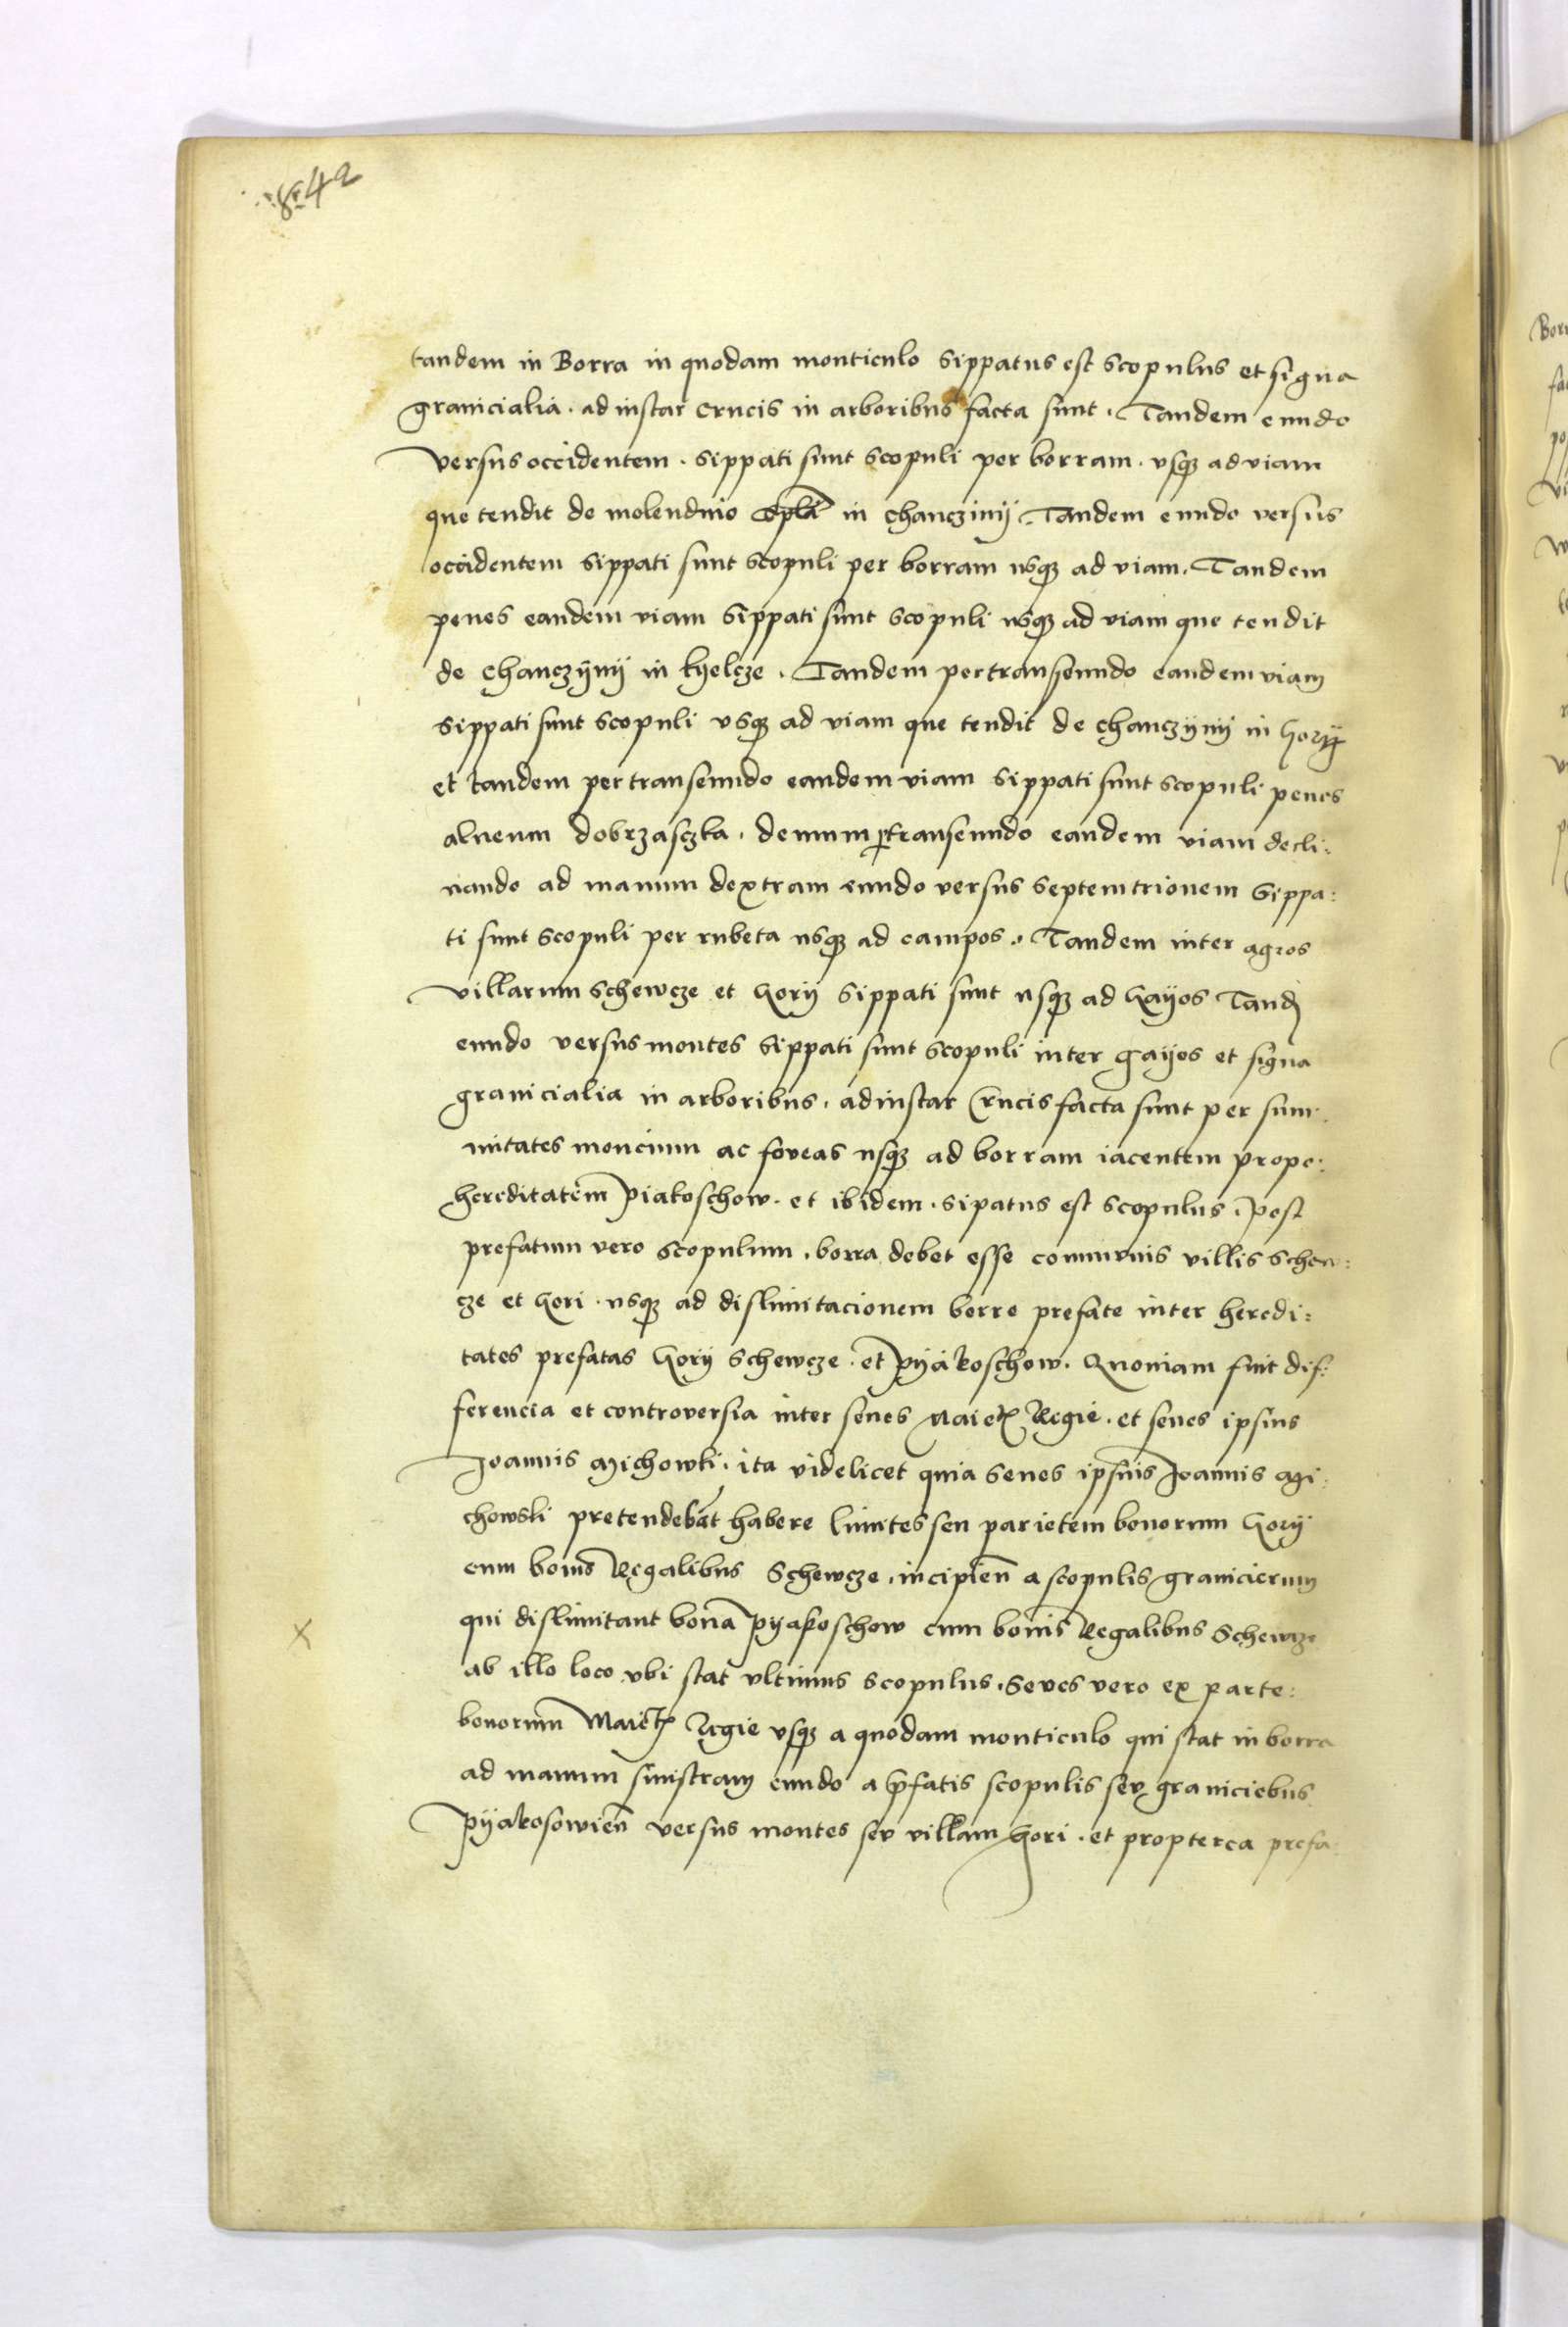 42
tandem in Borra in quodam monticulo sippatus est scopulus et signa
granicialia . ad instar crucis in arboribus facta sunt . Tandem eundo
versus occidentem . sippati sunt scopuli per borram . vsqȝ ad viam
que tendit de molendino in Chanczinÿ . Tandem eundo versus
occidentem sippati sunt scopuli per borram usqȝ ad viam . Tandem
penes eandem viam sippati sunt scopuli usqȝ ad viam que tendit
de Chanczÿnÿ in Kÿelcze . Tandem pertranseundo eandem viam
sippati sunt scopuli vsqȝ ad viam que tendit de Chanczÿnÿ in Gorÿ
et tandem pertranseundo eandem viam sippati sunt scopuli penes
alueum dobrzaszka . demum ꝑtranseundo eandem viam decli:
nando ad manum dextram eundo versus septemtrionem Sippa:
ti sunt scopuli per rubeta usqȝ ad campos . Tandem inter agros
villarum Schewcze et Gorÿ sippati sunt usqȝ ad Gaÿos Tandē
eundo versus montes sippati sunt scopuli inter gaÿos et signa
granicialia in arboribus . ad instar Crucis facta sunt per sum:
mitates moncium ac foveas usqȝ ad borram iacentem prope:
hereditatēm Piakoschow . et ibidem . sipatus est scopulus . Post
prefatum vero scopulum . borra debet esse communis villis Schew:
cze et Gori . usqȝ ad dislimitacionem borre prefate inter heredi:
tates prefatas Gorÿ Schewcze . et Pÿakoschow . Quoniam fuit dif:
ferencia et controversia inter senes Maietꝭ Regie . et senes ipsius
Joannis Michowski . ita videlicet quia senes ipsius Joannis Mi:
chowski pretendebāt habere limites seu parietem bonorum Gorÿ
cum bonis Regalibus Schewcze . incipien̄ a scopulis granicierum
qui dislimitant bona Pÿakoschow cum bonis Regalibus Schewcze
ab illo loco vbi stat vltimus scopulus . Senes vero ex parte:
bonorum Maietꝭ Regie vsqȝ a quodam monticulo qui stat in borra
ad manum sinistram eundo a p̄fatis scopulis sev graniciebus
Pÿakosowien̄ versus montes sev villam Gori . et propterea prefa: